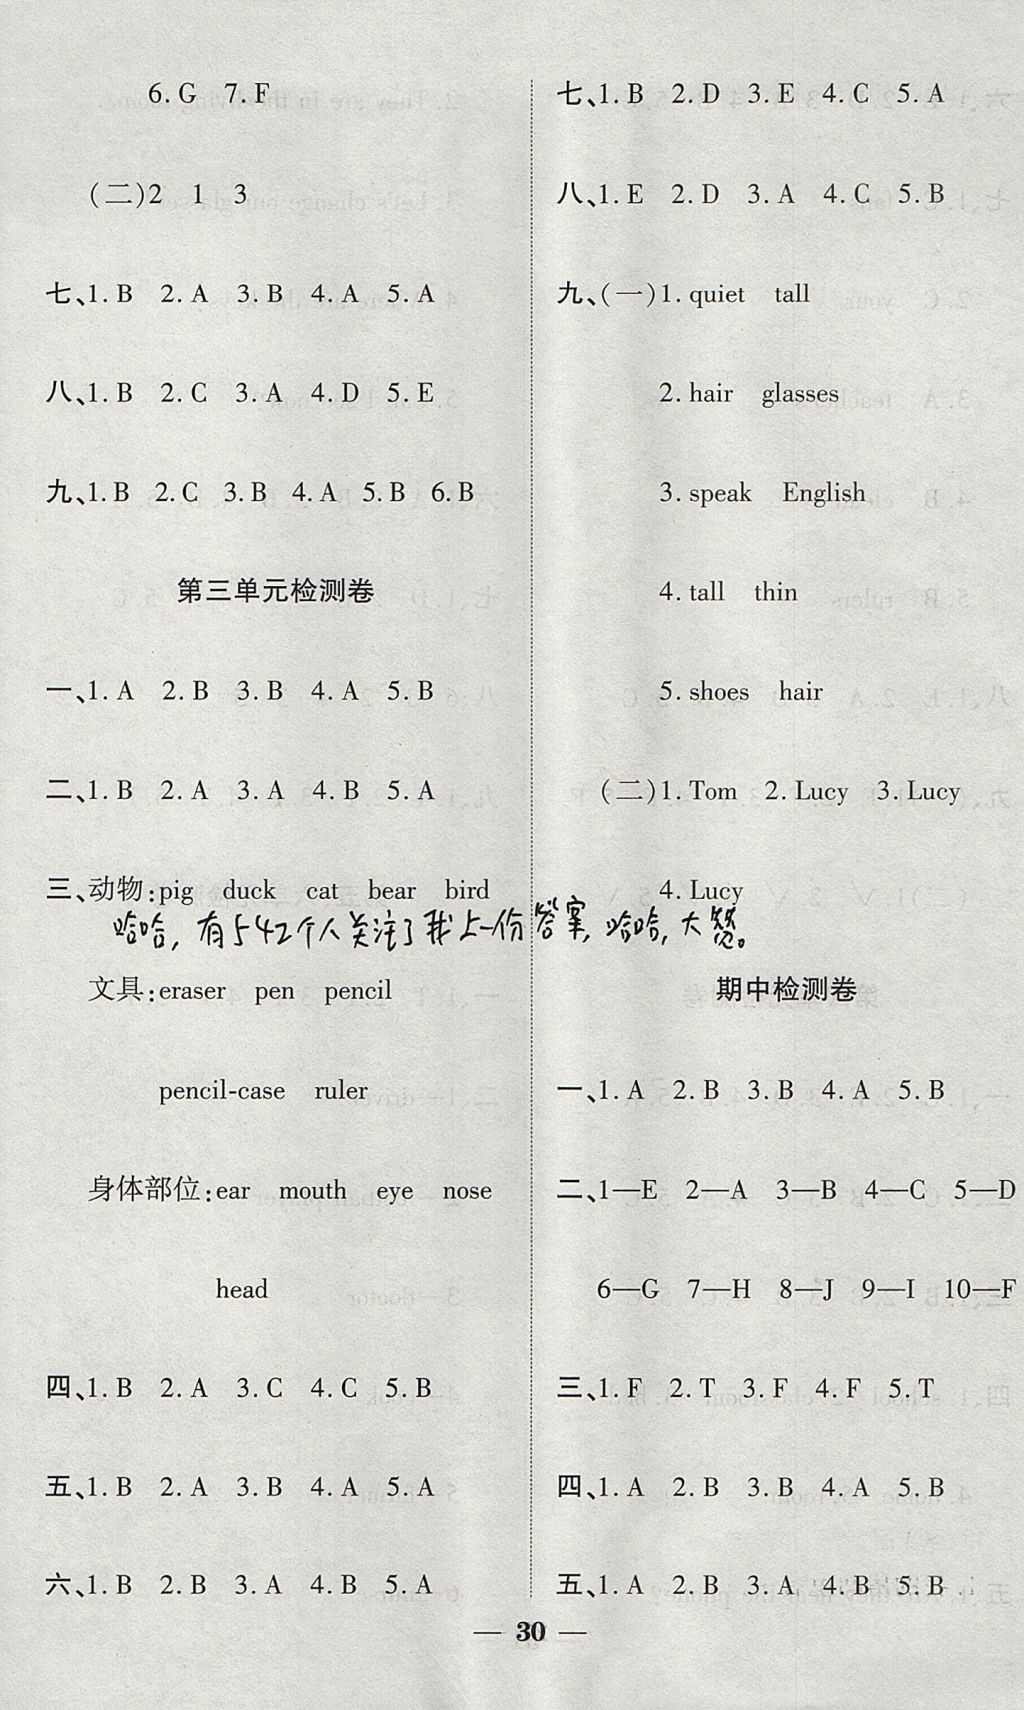 6. G 7. F
(二)2 1 3
七、1. B 2. A 3. B 4. A 5. A
八、1. B 2. C 3. A 4. D 5. E
九、1. B 2. C 3. B 4. A 5. B 6. B
第三单元检测卷
一、1. A 2. B 3. B 4. A 5. B
二、1. B 2. A 3. A 4. B 5. A
三、动物:pig duck cat bear bird
哈哈,有542个人关注了我上一份答案,哈哈,大赞。
文具:eraser pen pencil
pencil-case ruler
身体部位:ear mouth eye nose
head
四、1. B 2. A 3. C 4. C 5. B
五、1. B 2. A 3. B 4. A 5. A
六、1. B 2. B 3. A 4. B 5. A
七、1. B 2. D 3. E 4. C 5. A
八、1. E 2. D 3. A 4. C 5. B
九、(一)1. quiet tall
2. hair glasses
3. speak English
4. tall thin
5. shoes hair
(二)1. Tom 2. Lucy 3. Lucy
4. Lucy
期中检测卷
一、1. A 2. B 3. B 4. A 5. B
二、1—E 2—A 3—B 4—C 5—D
6—G 7—H 8—J 9—I 10—F
三、1. F 2. T 3. F 4. F 5. T
四、1. A 2. B 3. B 4. A 5. B
五、1. A 2. B 3. A 4. B 5. B
— 30 —